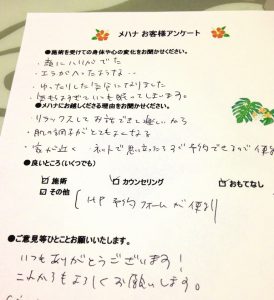 メハナ お客様アンケート
●施術を受けての身体や心の変化をお聞かせください。
・顔にハリがでた
・エラが入ったような・・
・ゆったりした気分になりました
●メハナにお越しくださる理由をお聞かせください。
・リラックスしてお話できて楽しいから
・肌の調子がとてもよくなる
・家が近く ネットで思い立ったらすぐ予約できるので便利
●良いところ(いくつでも)
☑ 施術 ☑ カウンセリング □ おもてなし
☑ その他 ( HP 予約フォームが便利
●ご意見等ひとことお願いいたします。
いつもありがとうございます!
これからもよろしくお願いします。